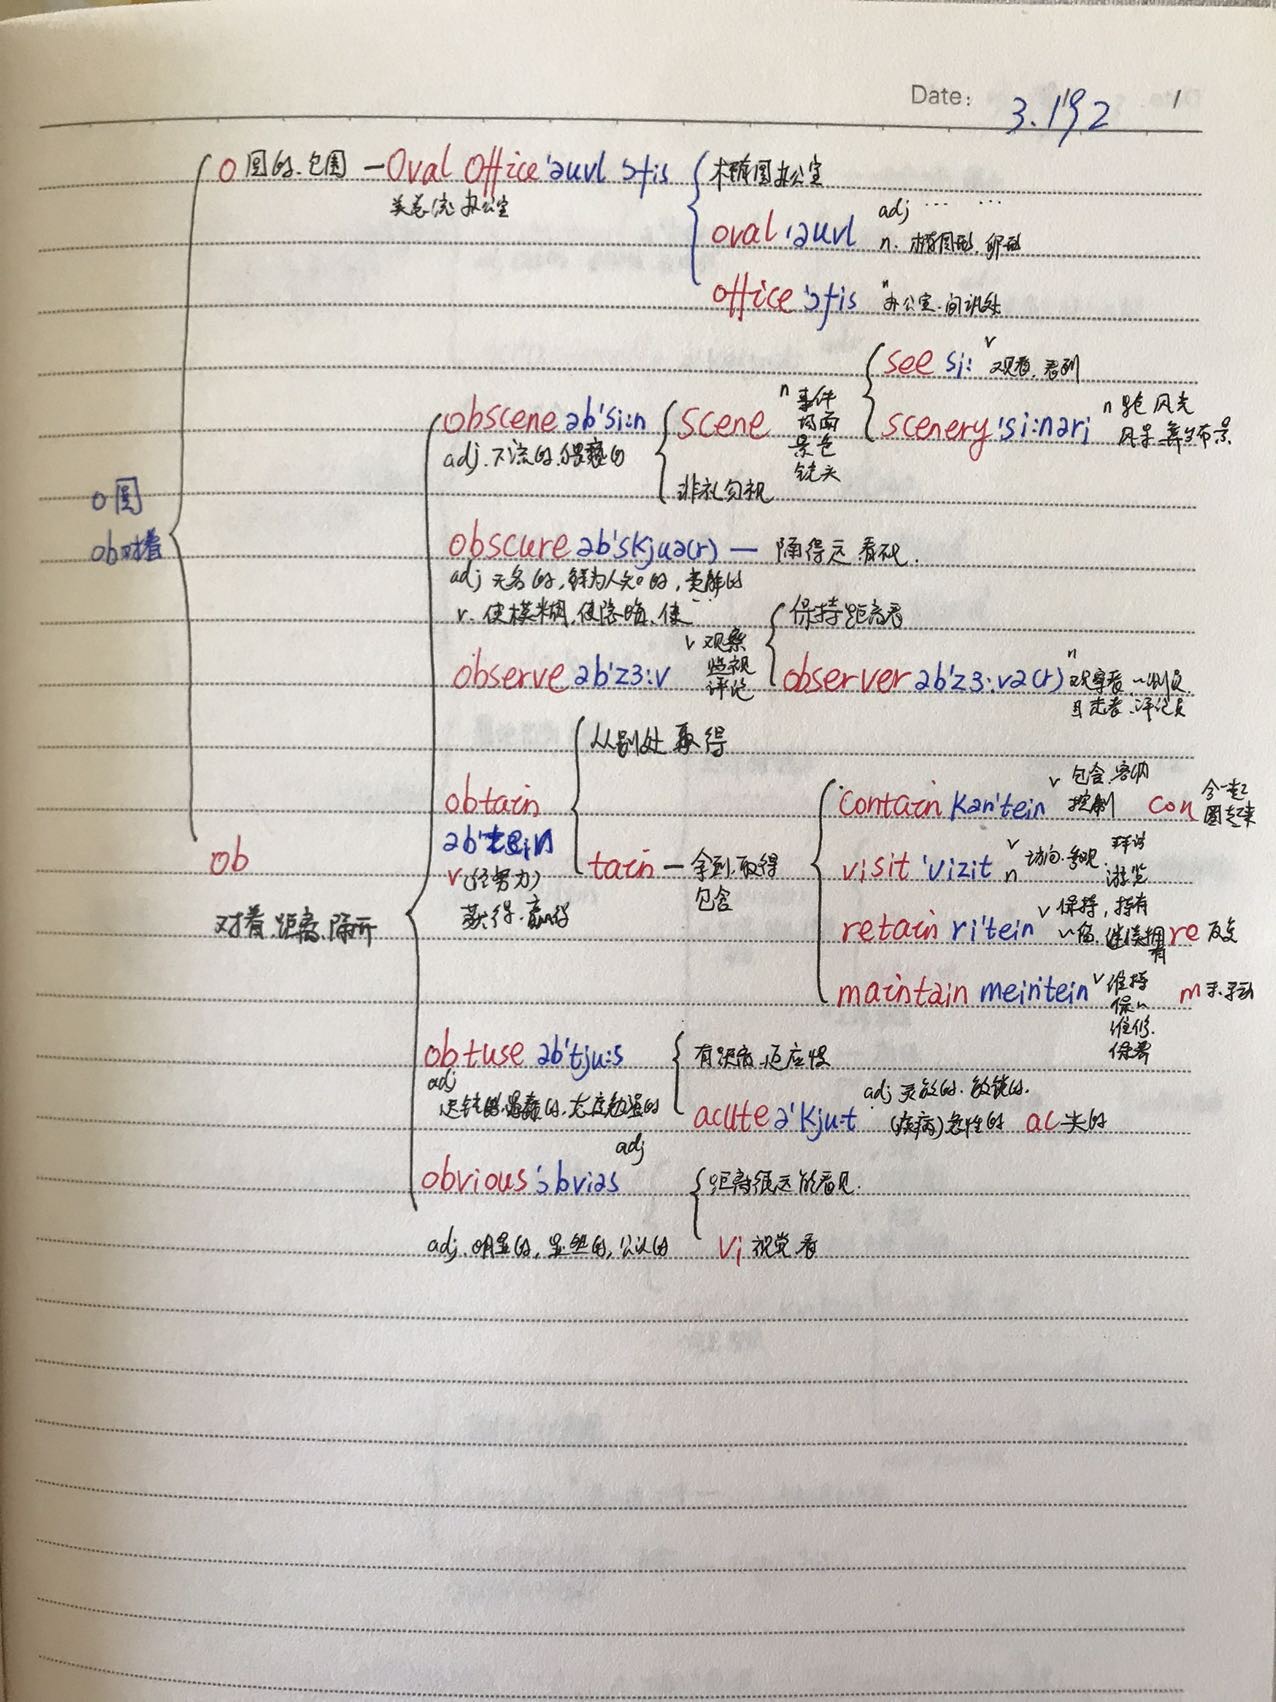 Date:
3.19 2
o 圆的.包围 — Oval Office 'əuvl ɔfis 椭圆办公室
美总统办公室
oval 'əuvl adj ... ...
n. 椭圆形, 卵形
office 'ɔfis n 办公室.问讯处
see si: v 观看,看到
obscene əb'si:n scene n 事件 场面 景色 镜头
scenery 'si:nəri n 景色 风光 风景 舞台布景
adj.下流的.猥亵的
非礼勿视
o圆
ob对着
obscure əb'skjuə(r) — 隔得远 看不见.
adj 无名的,鲜为人知的,费解的
v. 使模糊,使隐晦,使
保持距离看
observe əb'zɜ:v v 观察 监视 评论
observer əb'zɜ:və(r) n 观察者
从别处取得
obtain əb'tein
v (经努力) 获得.赢得
tain — 拿到.取得 包含
contain kən'tein v 包含.容纳 控制 con 圈起来
visit 'vizit v n 访问.参观. 拜访 游览
retain ri'tein v 保持, 持有 继续拥有 re 反复
maintain mein'tein v 维持 维修. 保养 m 手.手动
ob
对着.距离.隔开
obtuse əb'tju:s 有距离.反应慢
adj
迟钝的.愚蠢的.
acute ə'kju:t adj 灵敏的.敏锐的. (疾病)急性的 ac 尖的
adj
obvious 'ɔbviəs 距离很远能看见.
adj.明显的, 显然的, 公认的
vi 视觉 看